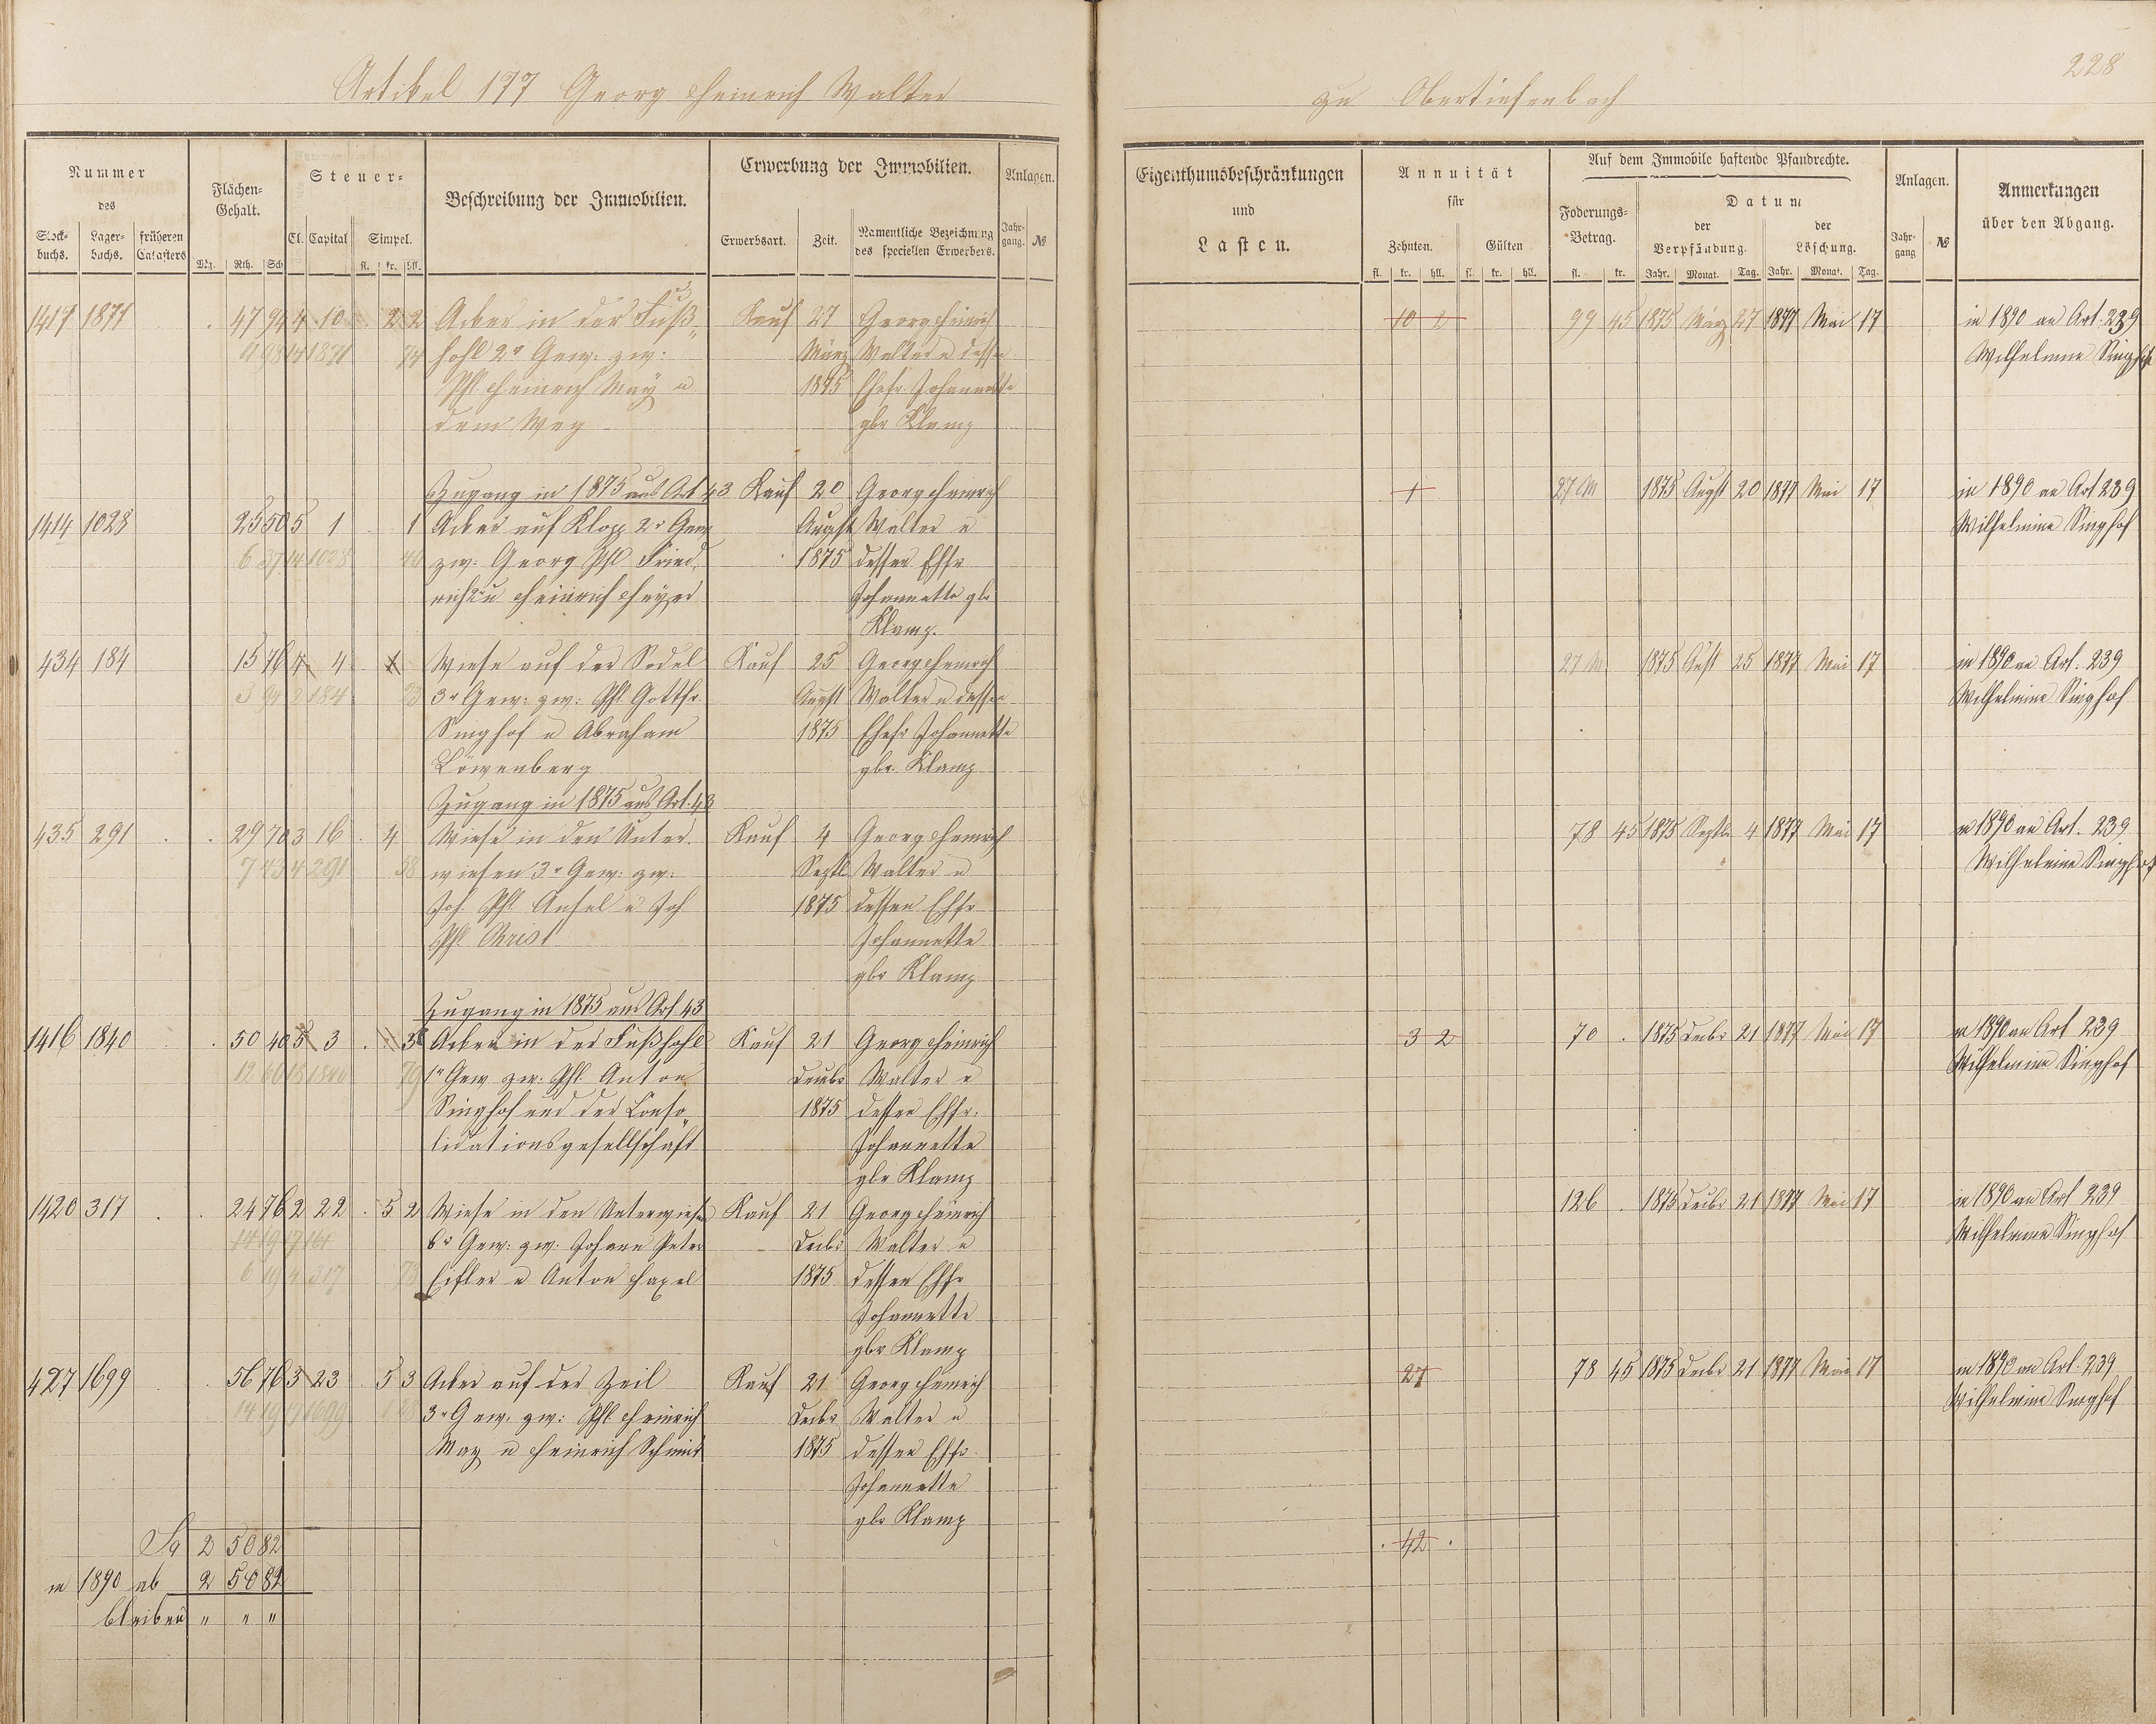 Artikel 177 Georg Heinrich Walter
zu Obertiefenbach
228
Nummer des
Stockbuchs. Lagerbuchs. früheren Catasters
Flächen-Gehalt.
Mg. Rth. Sch
Steuer-
Cl. Capital Simpel.
fl. kr. hll.
Beschreibung der Immobilien.
Erwerbung der Immobilien.
Erwerbsart. Zeit. Namentliche Bezeichnung des speciellen Erwerbers.
Anlagen.
Jahrgang. №
Eigenthumsbeschränkungen
und
Lasten.
Annuität
für
Zehnten. Gülten
fl. kr. hll. fl. kr. hll.
Auf dem Immobile haftende Pfandrechte.
Foderungs-Betrag.
fl. kr.
Datum
der Verpfändung. der Löschung.
Jahr. Monat. Tag. Jahr. Monat. Tag.
Anlagen.
Jahrgang №
Anmerkungen
über den Abgang.
1417 1871 47 94 4 10 2 2 Acker in der Fuß- Kauf 27 Georg Heinrich 10 2 99 45 1875 März 27 1877 Mai 17 in 1890 an Art. 239
11 98 14 1871 74 hohl 2r Gew: zw: März Walter u dessen Wilhelmine Singhof
Phl Heinrich May u 1875 Ehefr Johannette
dem Weg gbr Klamp
Zugang in 1875 aus Art 43 Kauf 20 Georg Heinrich 1 27 M 1875 Augst 20 1877 Mai 17 in 1890 an Art 239
1414 1028 25 50 5 1 1 Acker auf Klopp 2r Gew August Walter u Wilhelmine Singhof
6 37 14 1028 40 zw: Georg Phl Fried- 1875 dessen Ehfr
rich u Heinrich Heyer Johannette gbr
Klamp.
434 184 15 76 4 4 1 Wiese auf der Sodel Kauf 25 Georg Heinrich 27 M 1875 Augst 25 1877 Mai 17 in 1890 an Art. 239
3 94 2 184 23 3r Gew: zw: Phl. Gottfr. August Walter u dessen Wilhelmine Singhof
Singhof u Abraham 1875 Ehefr Johannette
Löwenberg gbr. Klamp
Zugang in 1875 aus Art. 43
435 291 29 70 3 16 4 Wiese in den Unter- Kauf 4 Georg Heinrich 78 45 1875 Septbr 4 1877 Mai 17 in 1890 an Art. 239
7 43 4 291 58 wiesen 3r Gew: zw: Septb Walter u Wilhelmine Singhof
Joh. Phl. Ansel u Joh 1875 dessen Ehfr
Phl. Christ Johannette
gbr Klamp
Zugang in 1875 aus Art 43
1416 1840 50 40 5 3 3 Acker in der Fußhohl Kauf 21 Georg Heinrich 3 2 70 1875 Decbr 21 1877 Mai 17 in 1890 an Art 239
12 60 18 1840 79 1r Gew zw: Phl. Anton Decbr Walter u Wilhelmine Singhof
Singhof und der Conso- 1875 dessen Ehfr.
lidationsgesellschaft Johannette
gbr Klamp
1420 317 24 76 2 22 5 2 Wiese in den Unterwiesen Kauf 21 Georg Heinrich 126 1875 Decbr 21 1877 Mai 17 in 1890 an Art 239
6r Gew: zw. Johann Peter Decbr Walter u Wilhelmine Singhof
6 19 4 317 73 Eifler u Anton Hazel 1875 dessen Ehfr
Johannette
gbr Klamp
427 1699 56 76 3 23 5 3 Acker auf der Zeil Kauf 21 Georg Heinrich 27 78 45 1875 Decbr 21 1877 Mai 17 in 1890 an Art. 239
14 19 17 1699 3r Gew. zw: Phl. Heinrich Decbr Walter u Wilhelmine Singhof
May u Heinrich Schmidt 1875 dessen Ehfr
Johannette
gbr Klamp
Sa 2 50 82 42
in 1890 ab 2 50 82
bleiben " " "